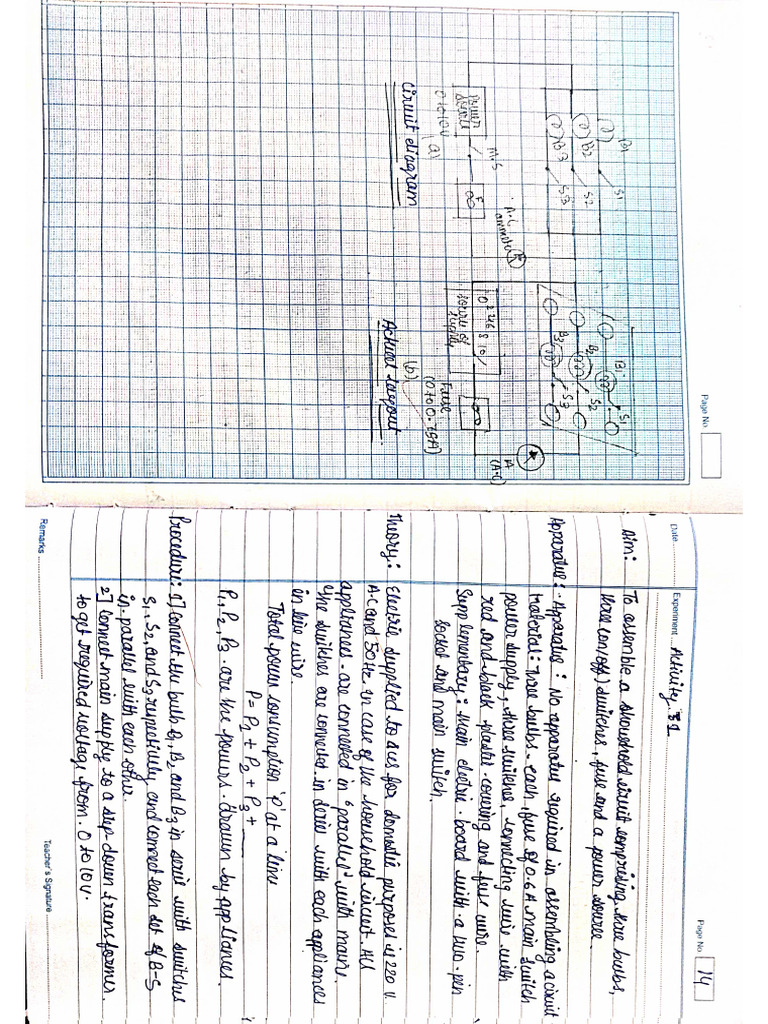 Page No.
B1
S1
B2
S2
B3
S3
A.C
ammeter
A
M.S
Power
supply
0 to 10V
(a)
Circuit diagram
B1
S1
B2
S2
B3
S3
0 2 4 6 8 10
source of
supply
Fuse
(0 to 0.75A)
A
(A.C)
(b)
Actual Layout
Date
Experiment Activity 31
Page No. 14
Aim: To assemble a household circuit comprising three bulbs,
three (on/off) switches, fuse and a power source
Apparatus: Apparatus: No apparatus required in assembling a circuit
material: Three bulbs each, fuse of 0.6 A main switch
power supply, three switches, connecting wire with
red and black plastic covering and fuse wire.
Supplementary: Main electric board with a two-pin
socket and main switch.
Theory: Electric supplied to us for domestic purposes is 220 V
A.C and 50 Hz in case of the household circuit. All
appliances are connected in "parallel" with mains.
The switches are connected in series with each appliances
in live wire.
Total power consumption 'p' at a time
P = P1 + P2 + P3 + __
P1, P2, P3 are the powers drawn by appliances.
Procedure: 1] Connect the bulb B1, B2 and B3 in series with switches
S1, S2, and S3 respectively and connect each set of B-S
in parallel with each other.
2] Connect main supply to a step-down transformer
to get required voltage from 0 to 10V.
Remarks
Teacher's Signature